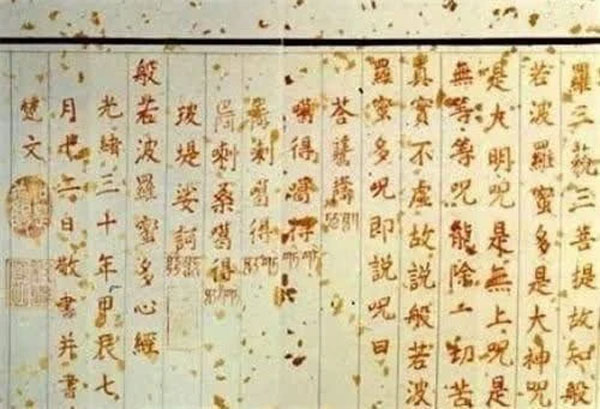 羅三藐三菩提故知般
若波羅蜜多是大神咒
是大明咒是無上咒是
無等等咒能除一切苦
真實不虛故說般若波
羅蜜多咒即說咒曰
荅
噶得噶得
剌噶得
剌桑噶得
堤娑訶
般若波羅蜜多心經
光緒三十年甲辰七
月十二日敬書并書
梵文